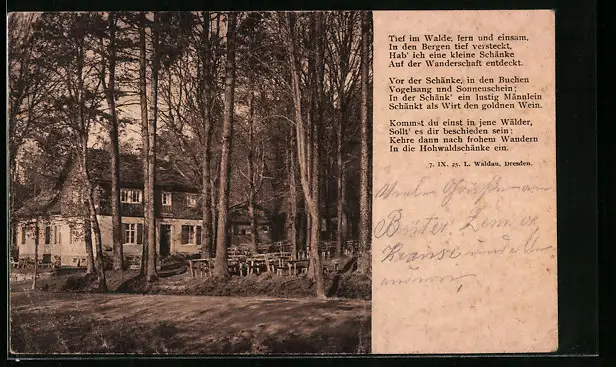 Tief im Walde, fern und einsam,
In den Bergen tief versteckt,
Hab' ich eine kleine Schänke
Auf der Wanderschaft entdeckt.
Vor der Schänke, in den Buchen
Vogelsang und Sonnenschein;
In der Schänk' ein lustig Männlein
Schänkt als Wirt den goldnen Wein.
Kommst du einst in jene Wälder,
Sollt' es dir beschieden sein:
Kehre dann nach frohem Wandern
In die Hohwaldschänke ein.
7. IX. 25. L. Waldau, Dresden.
Viele Grüße an